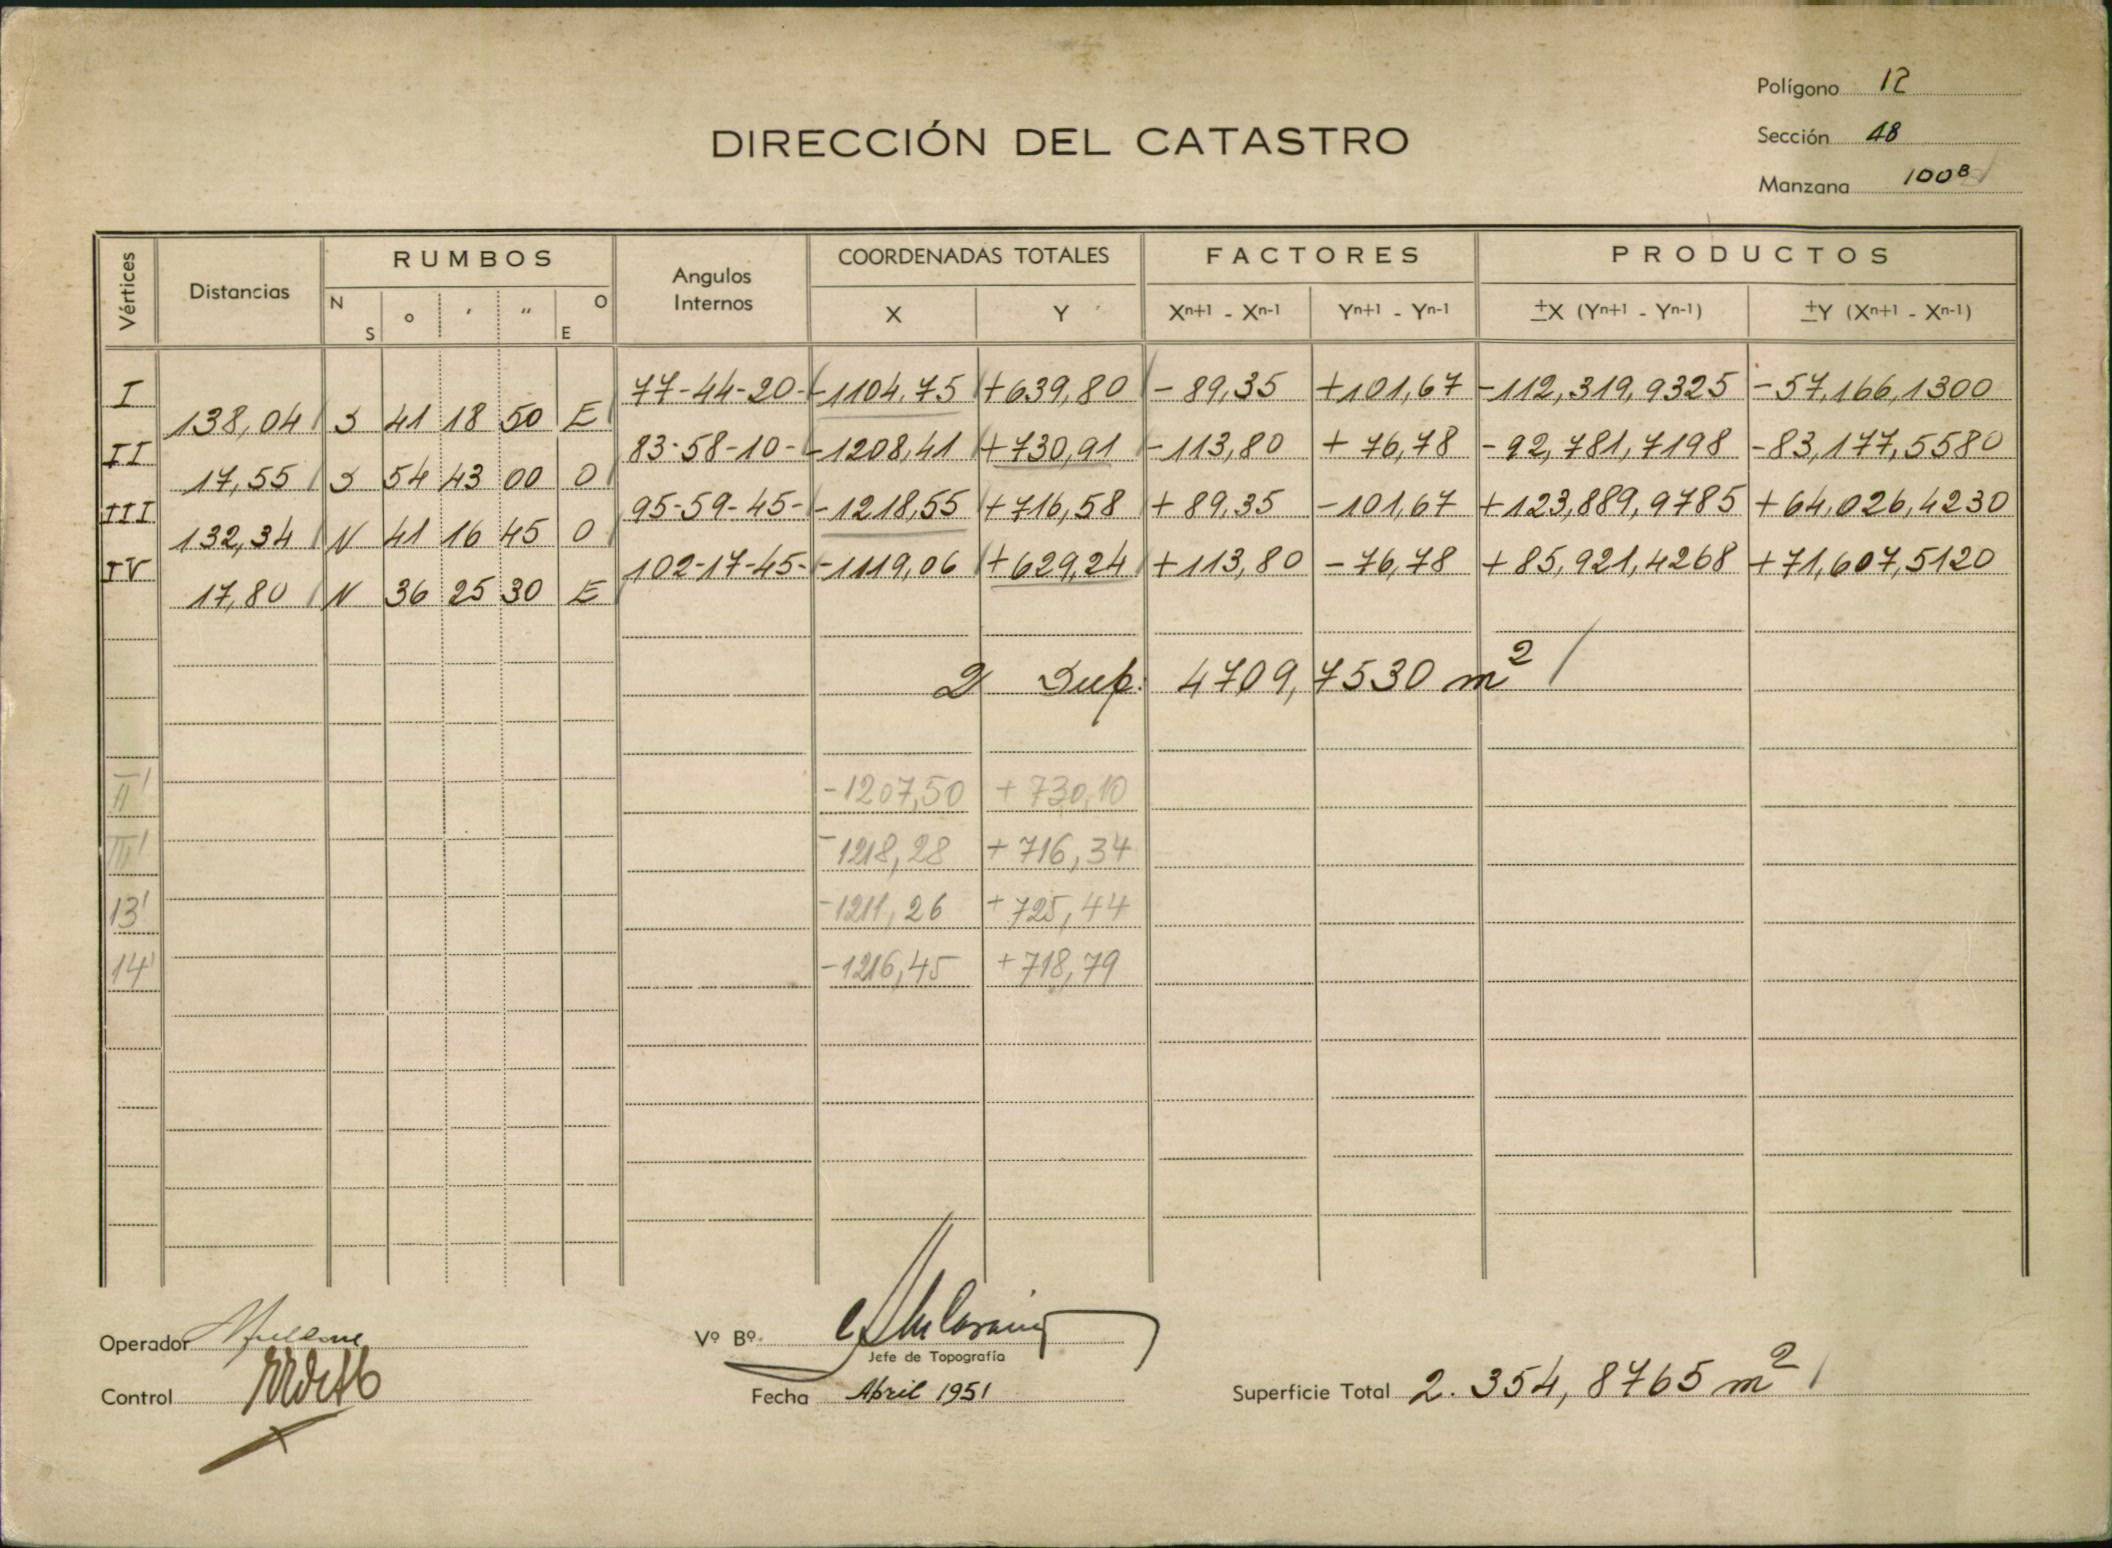 Polígono 12
DIRECCIÓN DEL CATASTRO
Sección 48
Manzana 100 B
Vértices Distancias RUMBOS Angulos Internos COORDENADAS TOTALES FACTORES PRODUCTOS
N S o ′ ″ O E X Y Xn+1 - Xn-1 Yn+1 - Yn-1 ±X (Yn+1 - Yn-1) ±Y (Xn+1 - Xn-1)
I 77-44-20- -1104,75 +639,80 -89,35 +101,67 -112,319,9325 -57,166,1300
138,04 S 41 18 50 E
II 83-58-10- -1208,41 +730,91 -113,80 +76,78 -92,781,7198 -83,177,5580
17,55 S 54 43 00 O
III 95-59-45- -1218,55 +716,58 +89,35 -101,67 +123,889,9785 +64,026,4230
132,34 N 41 16 45 O
IV 102-17-45- -1119,06 +629,24 +113,80 -76,78 +85,921,4268 +71,607,5120
17,80 N 36 25 30 E
2 Sup. 4709,7530 m2
II' -1207,50 +730,10
III' -1218,28 +716,34
13' -1211,26 +725,44
14' -1216,45 +718,79
Operador
Vº Bº
Jefe de Topografía
Control
Fecha Abril 1951
Superficie Total 2.354,8765 m2